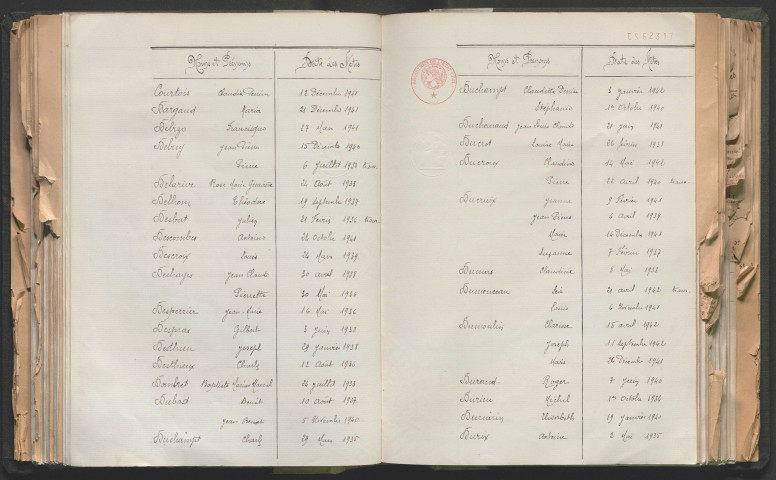 Noms et Prénoms Date des Actes
Courtois Claude Denise 12 Décembre 1941
Dargaud Maria 21 Décembre 1941
Francisque 27 Mars 1941
Jean Pierre 15 Décembre 1940
Pierre 6 Juillet 1933
Delarive Rose Marie 24 Août 1938
Delhom Théodore 19 Septembre 1937
Desbat Julien 21 Février 1936
Descombes Antoine 24 Octobre 1941
Descroix Louis 24 Mars 1939
Deshayes Jean Claude 30 avril 1938
Pierrette 30 Mai 1934
Desperrier Jean-Marie 16 Mai 1936
Despras Gilbert 3 Juin 1937
Desthieu Joseph 29 Janvier 1935
Desthieux Charles 12 Août 1936
Dombrot Baptiste Marius Marcel 24 Juillet 1933
Dubost Benoit 10 Août 1937
Jean Benoit 5 Novembre 1940
Duchampt Charles 29 Mars 1935
Noms et Prénoms Date des Actes
Duchampt Claudette Denise 5 Janvier 1942
Stéphanie 1er Octobre 1940
Jean Louis Claude 21 Juin 1941
Ducrot Louise Marie 24 février 1938
Ducroux Claudine 14 Mai 1942
Pierre 24 Avril 1940
Ducroix Jeanne 9 Février 1941
Jean Pierre 6 Avril 1939
Marie 14 Décembre 1941
Suzanne 7 Février 1937
Claudine 8 Mai 1938
Dumonceau 21 avril 1942
Louis 6 Novembre 1941
Dumoulin 15 avril 1942
Joseph 11 Septembre 1942
Marie 26 Décembre 1941
Durand Roger 7 Juin 1940
Durieu Michel 1er Octobre 1936
Elisabeth 19 Janvier 1940
Antoine 2 Mai 1935